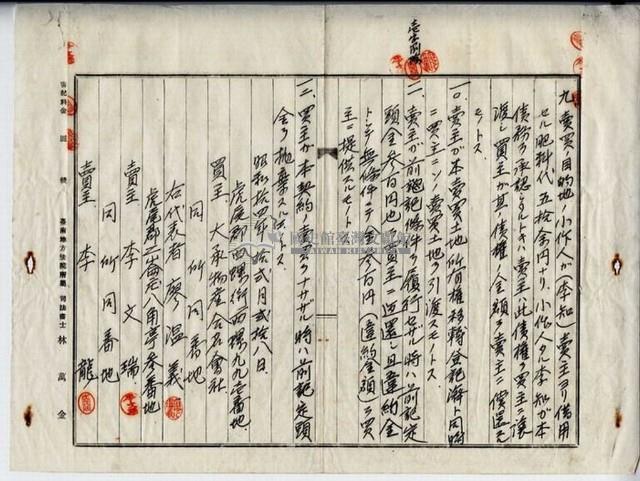 九、賣買ノ目的地ノ小作人ガ(李知)賣主ヨリ借用
セル肥料代 五拾余円ナリ、小作人タル李知ガ本
債務ヲ承認シタルトキハ賣主ハ此債權ヲ買主ニ讓
渡シ買主ガ其ノ債權ノ金額ヲ賣主ニ償還スル
モノトス
一〇、賣主ガ本賣買土地所有權移轉登記濟ト同時
ニ買主ニソノ賣買土地ヲ引渡スモノトス
一一、賣主ガ前記條件ヲ履行セザル時ハ前記定
頭金參百円也 買主ニ返還シ且違約金
トシテ無條件ニテ金參百円(違約金額)ヲ買
主ニ提供スルモノトス
一二、買主ガ本契約ノ責ヲナサザル時ハ前記定頭
金ヲ抛棄スルモノトス
昭和拾四年拾弍月弍拾八日
虎尾郡西螺街西螺九九壱番地
買主 大承物產合名會社
同所同番地
右代表者 廖溫義
虎尾郡崙背庄八角亭參番地
賣主 李文瑞
同所同番地
賣主 李龍
書記料金 圓 錢 臺南地方法院所屬 司法書士 林萬金
國史館臺灣文獻館